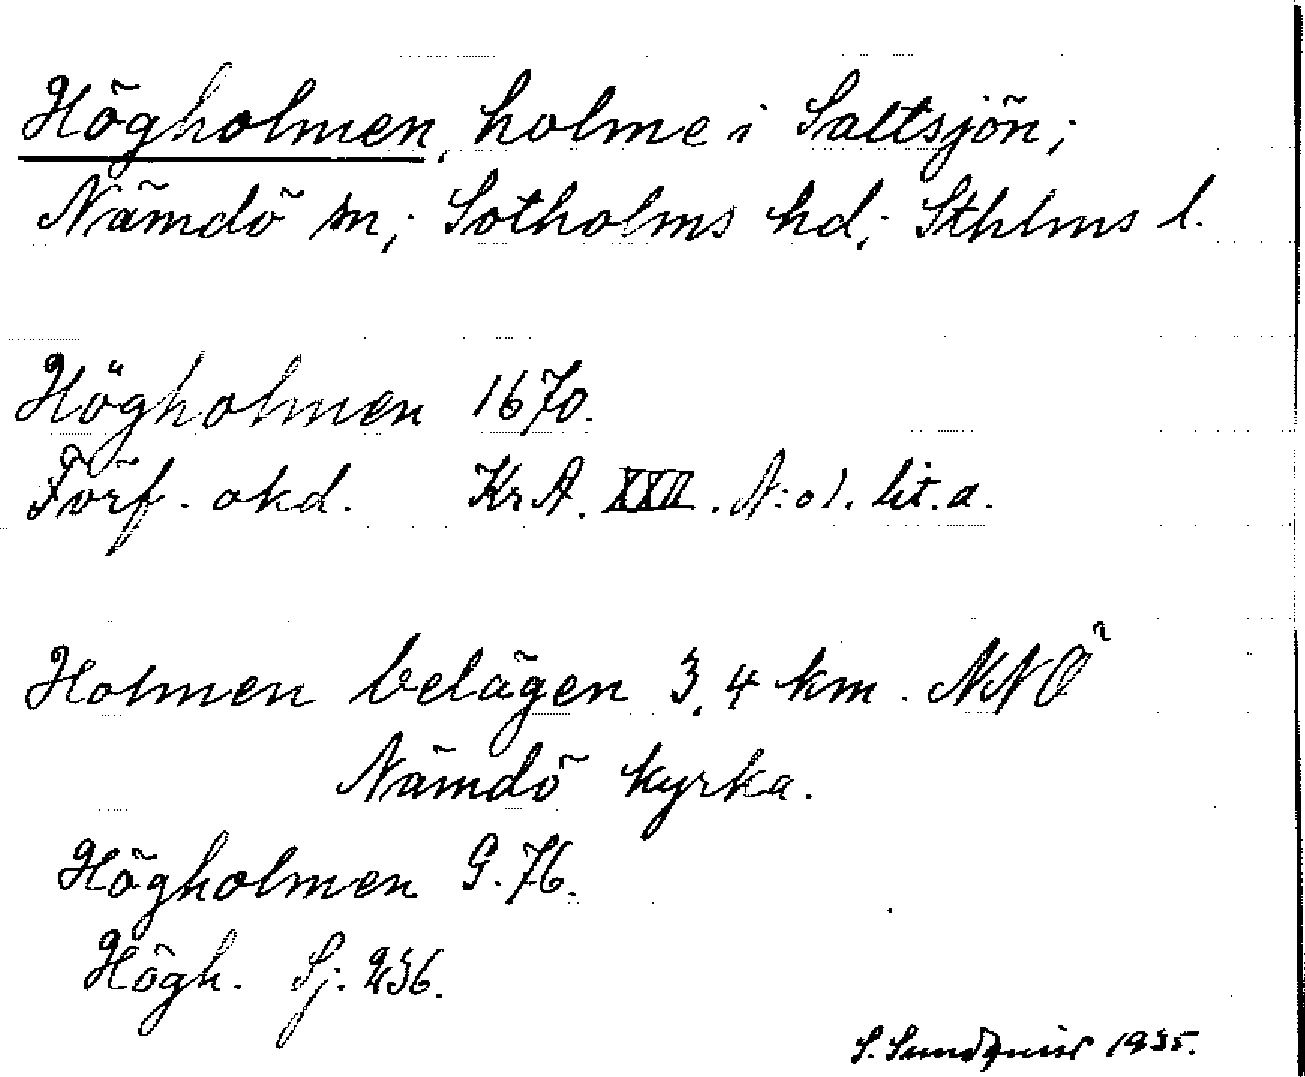 Högholmen, holme i Saltsjön;
Nämdö sn; Sotholms hd; Sthlms l.
Högholmen 1670.
Förf. okd. KrA. XXII. A:ol. lit. a.
Holmen belägen 3,4 km. NNÖ
Nämdö kyrka.
Högholmen G.76.
Högh. Sj. 236.
S. Sundqvist 1935.